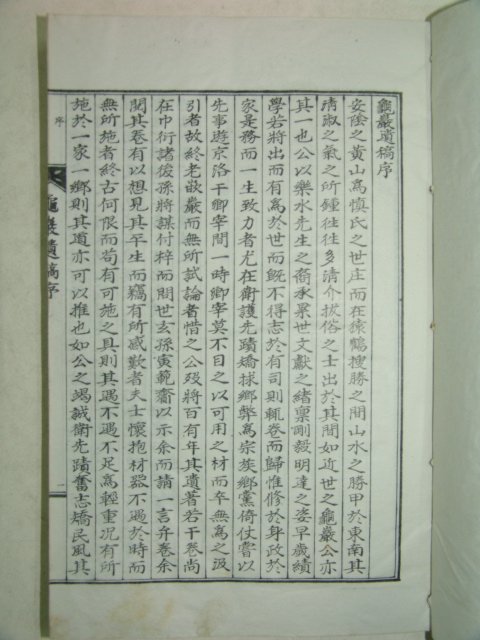 龜巖遺稿序
安陰之黃山爲愼氏之世庄而在猿鶴搜勝之間山水之勝甲於東南其
淸淑之氣之所鍾往往多淸介拔俗之士出於其間如近世之龜巖公亦
其一也公以樂水先生之裔承累世文獻之緖稟剛毅明達之姿早歲績
學若將出而有爲於世而旣不得志於有司則輒卷而歸惟修於身政於
家是務而一生致力者尤在衛護先蹟矯捄鄕弊爲宗族鄕黨倚仗嘗以
先事遊京洛干鄕宰間一時鄕宰莫不目之以可用之材而卒無爲之汲
引者故終老嶔巖而無所試論者惜之公歿將百有年其遺著若干卷尙
在巾衍諸後孫將謀付梓而問世玄孫寅範齎以示余而請一言弁卷余
閱其卷有以想見其平生而竊有所感歎者夫士懷抱材器不遇於時而
無所施者終古何限而苟有可施之具則其遇不遇不足爲輕重況有所
施於一家一鄕則其道亦可以推也如公之竭誠衛先蹟奮志矯民風其
序
龜巖遺稿序
一